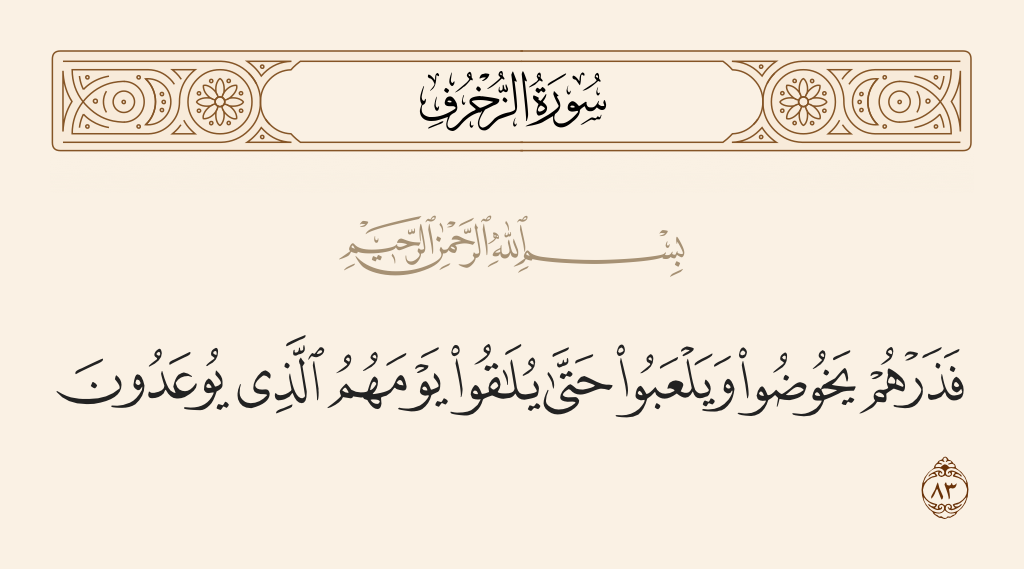 سُورَةُ الزُّخْرُفِ
بِسْمِ ٱللَّهِ ٱلرَّحْمَٰنِ ٱلرَّحِيمِ
فَذَرْهُمْ يَخُوضُوا۟ وَيَلْعَبُوا۟ حَتَّىٰ يُلَٰقُوا۟ يَوْمَهُمُ ٱلَّذِى يُوعَدُونَ
٨٣